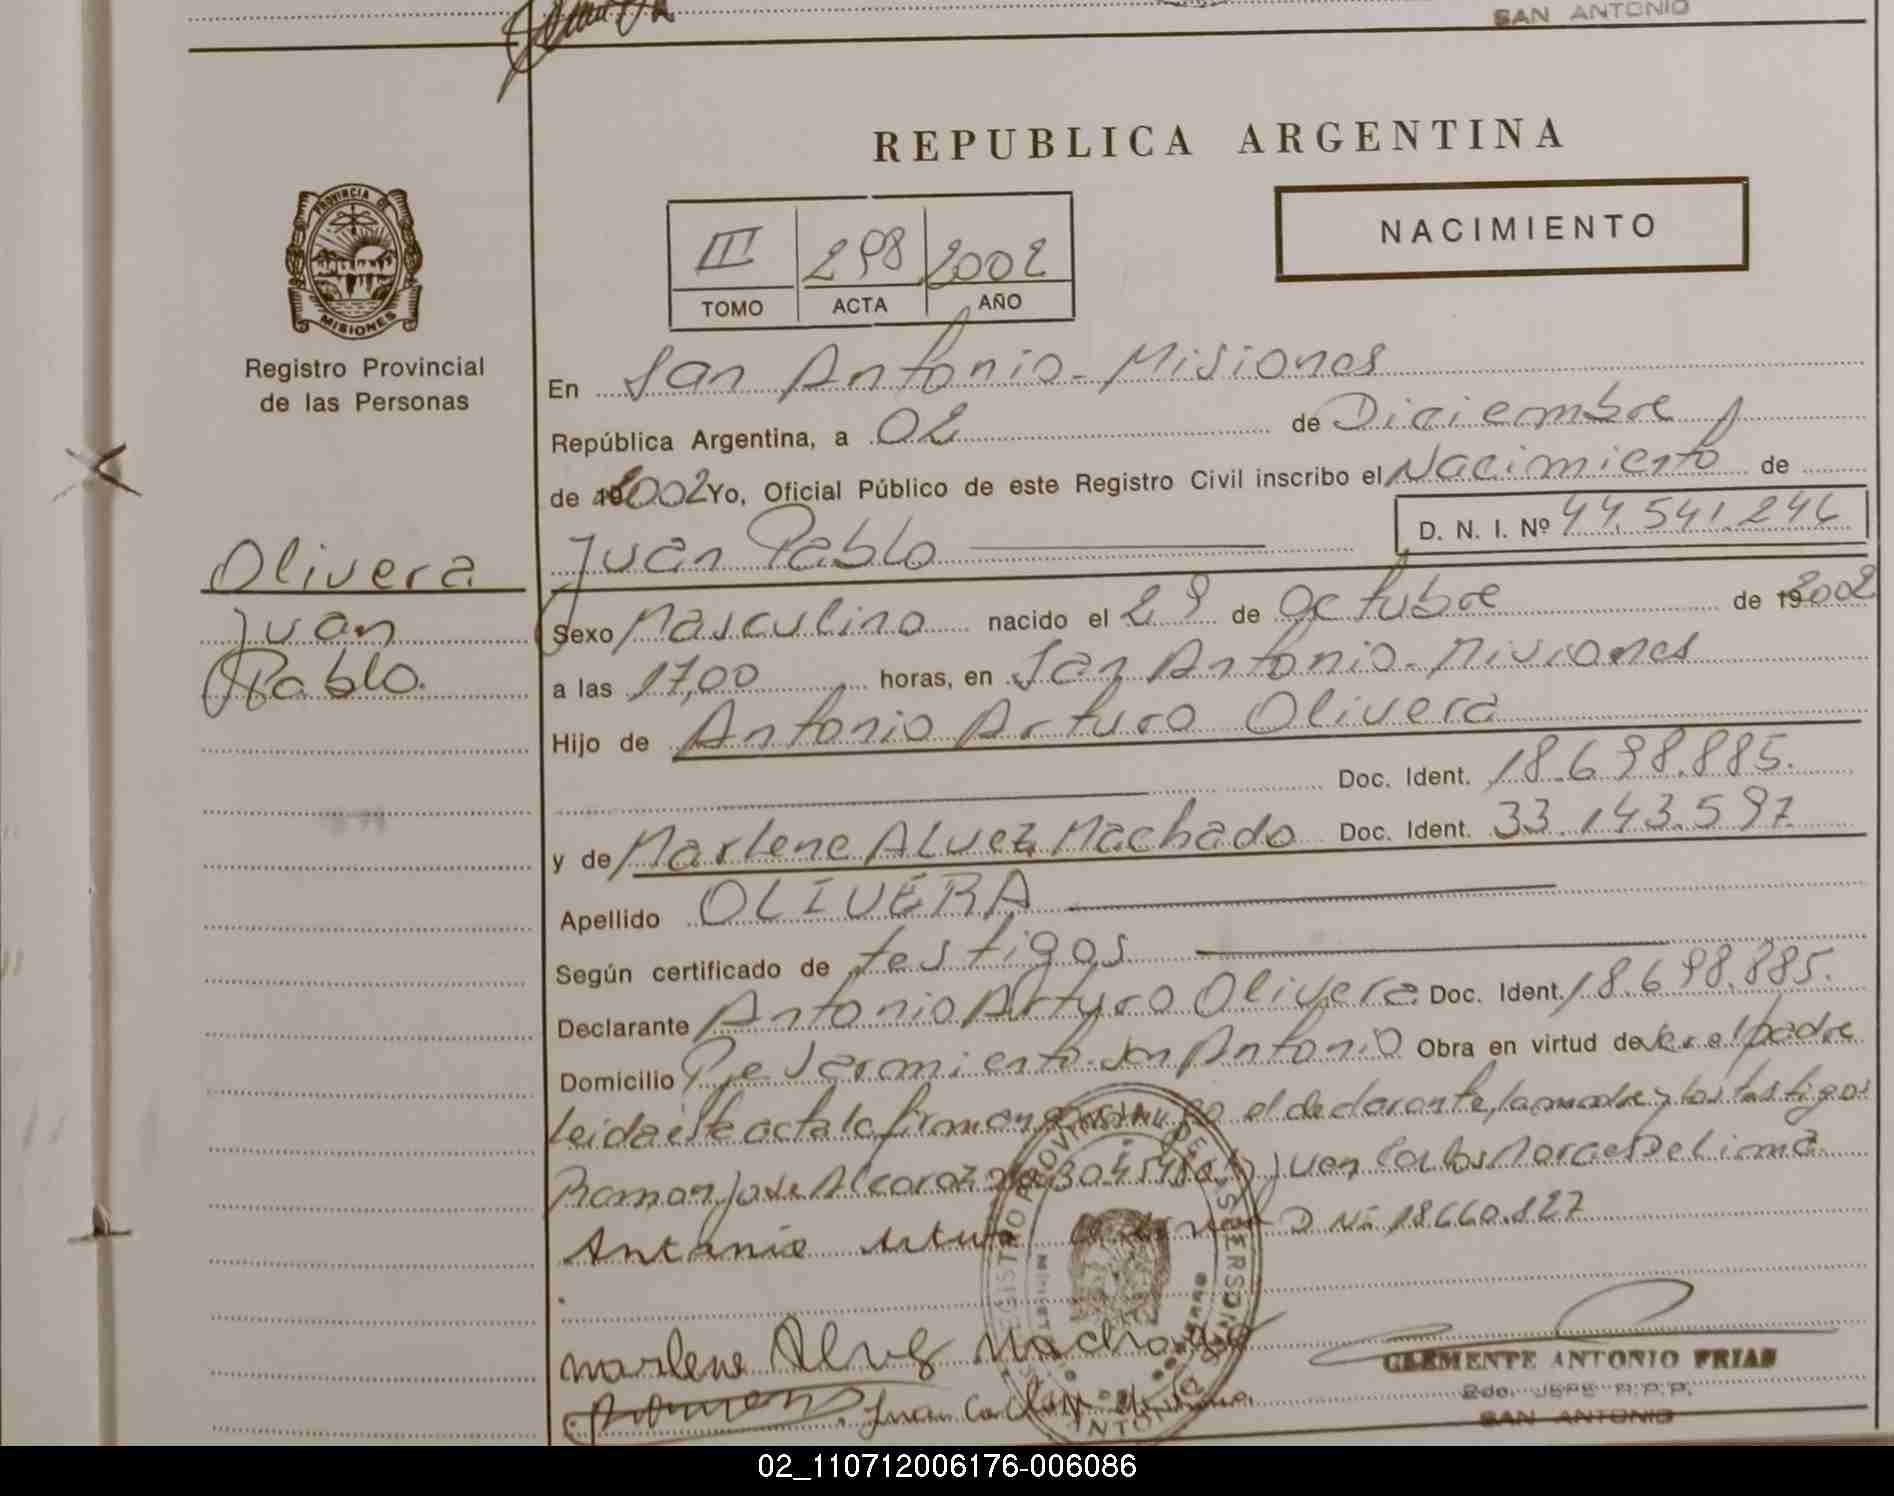 SAN ANTONIO
REPUBLICA ARGENTINA
PROVINCIA DE
MISIONES
Registro Provincial
de las Personas
III 298 2002
TOMO ACTA AÑO
NACIMIENTO
En San Antonio - Misiones
República Argentina, a 02 de Diciembre
de 2002 Yo, Oficial Público de este Registro Civil inscribo el Nacimiento de
Juan Pablo D. N. I. Nº 44.541.246
Olivera
Juan
Pablo.
Sexo Masculino nacido el 29 de Octubre de 2002
a las 17,00 horas, en San Antonio - Misiones
Hijo de Antonio Arturo Olivera
Doc. Ident. 18.698.885.
y de Marlene Alvez Machado Doc. Ident. 33.143.597
Apellido OLIVERA
Según certificado de testigos
Declarante Antonio Arturo Olivera Doc. Ident. 18.698.885.
Domicilio San Antonio Obra en virtud de ser el padre
Leida este acta la firman el declarante, la madre y los testigos
Ramon Jose Alcaraz Juan Carlos De Lima
Antonio Arturo DNI 18660.827
Marlene Alvez Machado
Juan
CLEMENTE ANTONIO FRIAS
2do. JEFE R.P.P.
SAN ANTONIO
02_110712006176-006086